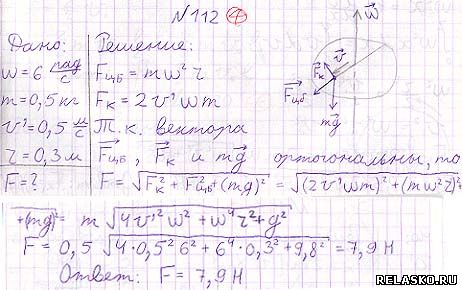 N 112 ④
Дано:
ω = 6 рад/с
m = 0,5 кг
v' = 0,5 м/с
r = 0,3 м
F = ?
Решение:
Fцб = mω²r
Fк = 2v'ωm
Т.к. вектора
Fцб, Fк и mg ортогональны, то
F = √(Fк² + Fцб² + (mg)²) = √((2v'ωm)² + (mω²r)² +
+(mg)² = m √(4v'²ω² + ω⁴r² + g²)
F = 0,5 √(4·0,5²6² + 6⁴·0,3² + 9,8²) = 7,9 Н
Ответ: F = 7,9 Н
ω
v'
Fк
Fцб
mg
RELASKO.RU